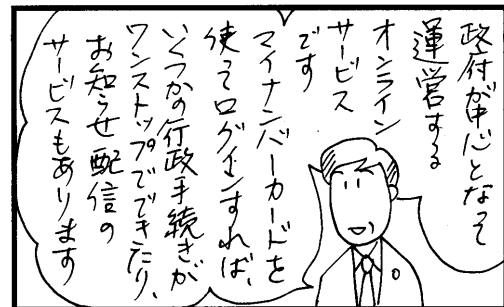 政府が中心となって
運営する
オンライン
サービス
です
マイナンバーカードを
使ってログインすれば、
いくつかの行政手続きが
ワンストップでできたり、
お知らせ配信の
サービスもあります